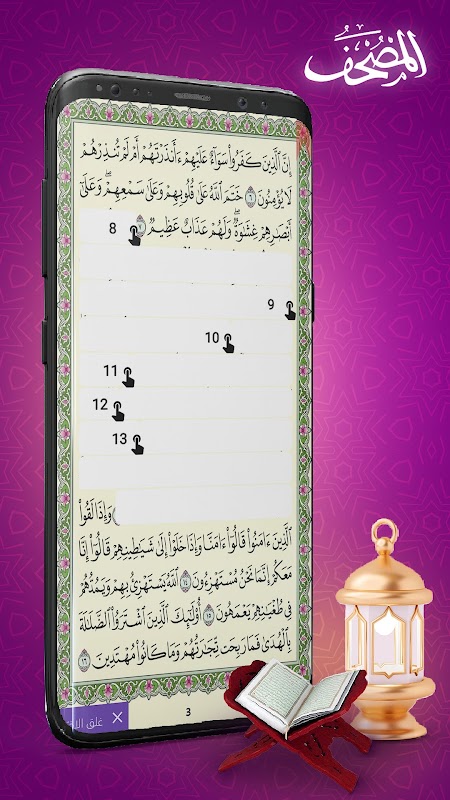 المصحف
إِنَّ ٱلَّذِينَ كَفَرُوا۟ سَوَآءٌ عَلَيْهِمْ ءَأَنذَرْتَهُمْ أَمْ لَمْ تُنذِرْهُمْ
لَا يُؤْمِنُونَ ٦ خَتَمَ ٱللَّهُ عَلَىٰ قُلُوبِهِمْ وَعَلَىٰ سَمْعِهِمْ ۖ وَعَلَىٰٓ
أَبْصَٰرِهِمْ غِشَٰوَةٌ ۖ وَلَهُمْ عَذَابٌ عَظِيمٌ ٧
8
9
10
11
12
13
وَإِذَا لَقُوا۟
ٱلَّذِينَ ءَامَنُوا۟ قَالُوٓا۟ ءَامَنَّا وَإِذَا خَلَوْا۟ إِلَىٰ شَيَٰطِينِهِمْ قَالُوٓا۟ إِنَّا
مَعَكُمْ إِنَّمَا نَحْنُ مُسْتَهْزِءُونَ ١٤ ٱللَّهُ يَسْتَهْزِئُ بِهِمْ وَيَمُدُّهُمْ
فِى طُغْيَٰنِهِمْ يَعْمَهُونَ ١٥ أُو۟لَٰٓئِكَ ٱلَّذِينَ ٱشْتَرَوُا۟ ٱلضَّلَٰلَةَ
بِٱلْهُدَىٰ فَمَا رَبِحَت تِّجَٰرَتُهُمْ وَمَا كَانُوا۟ مُهْتَدِينَ ١٦
3
X غلق